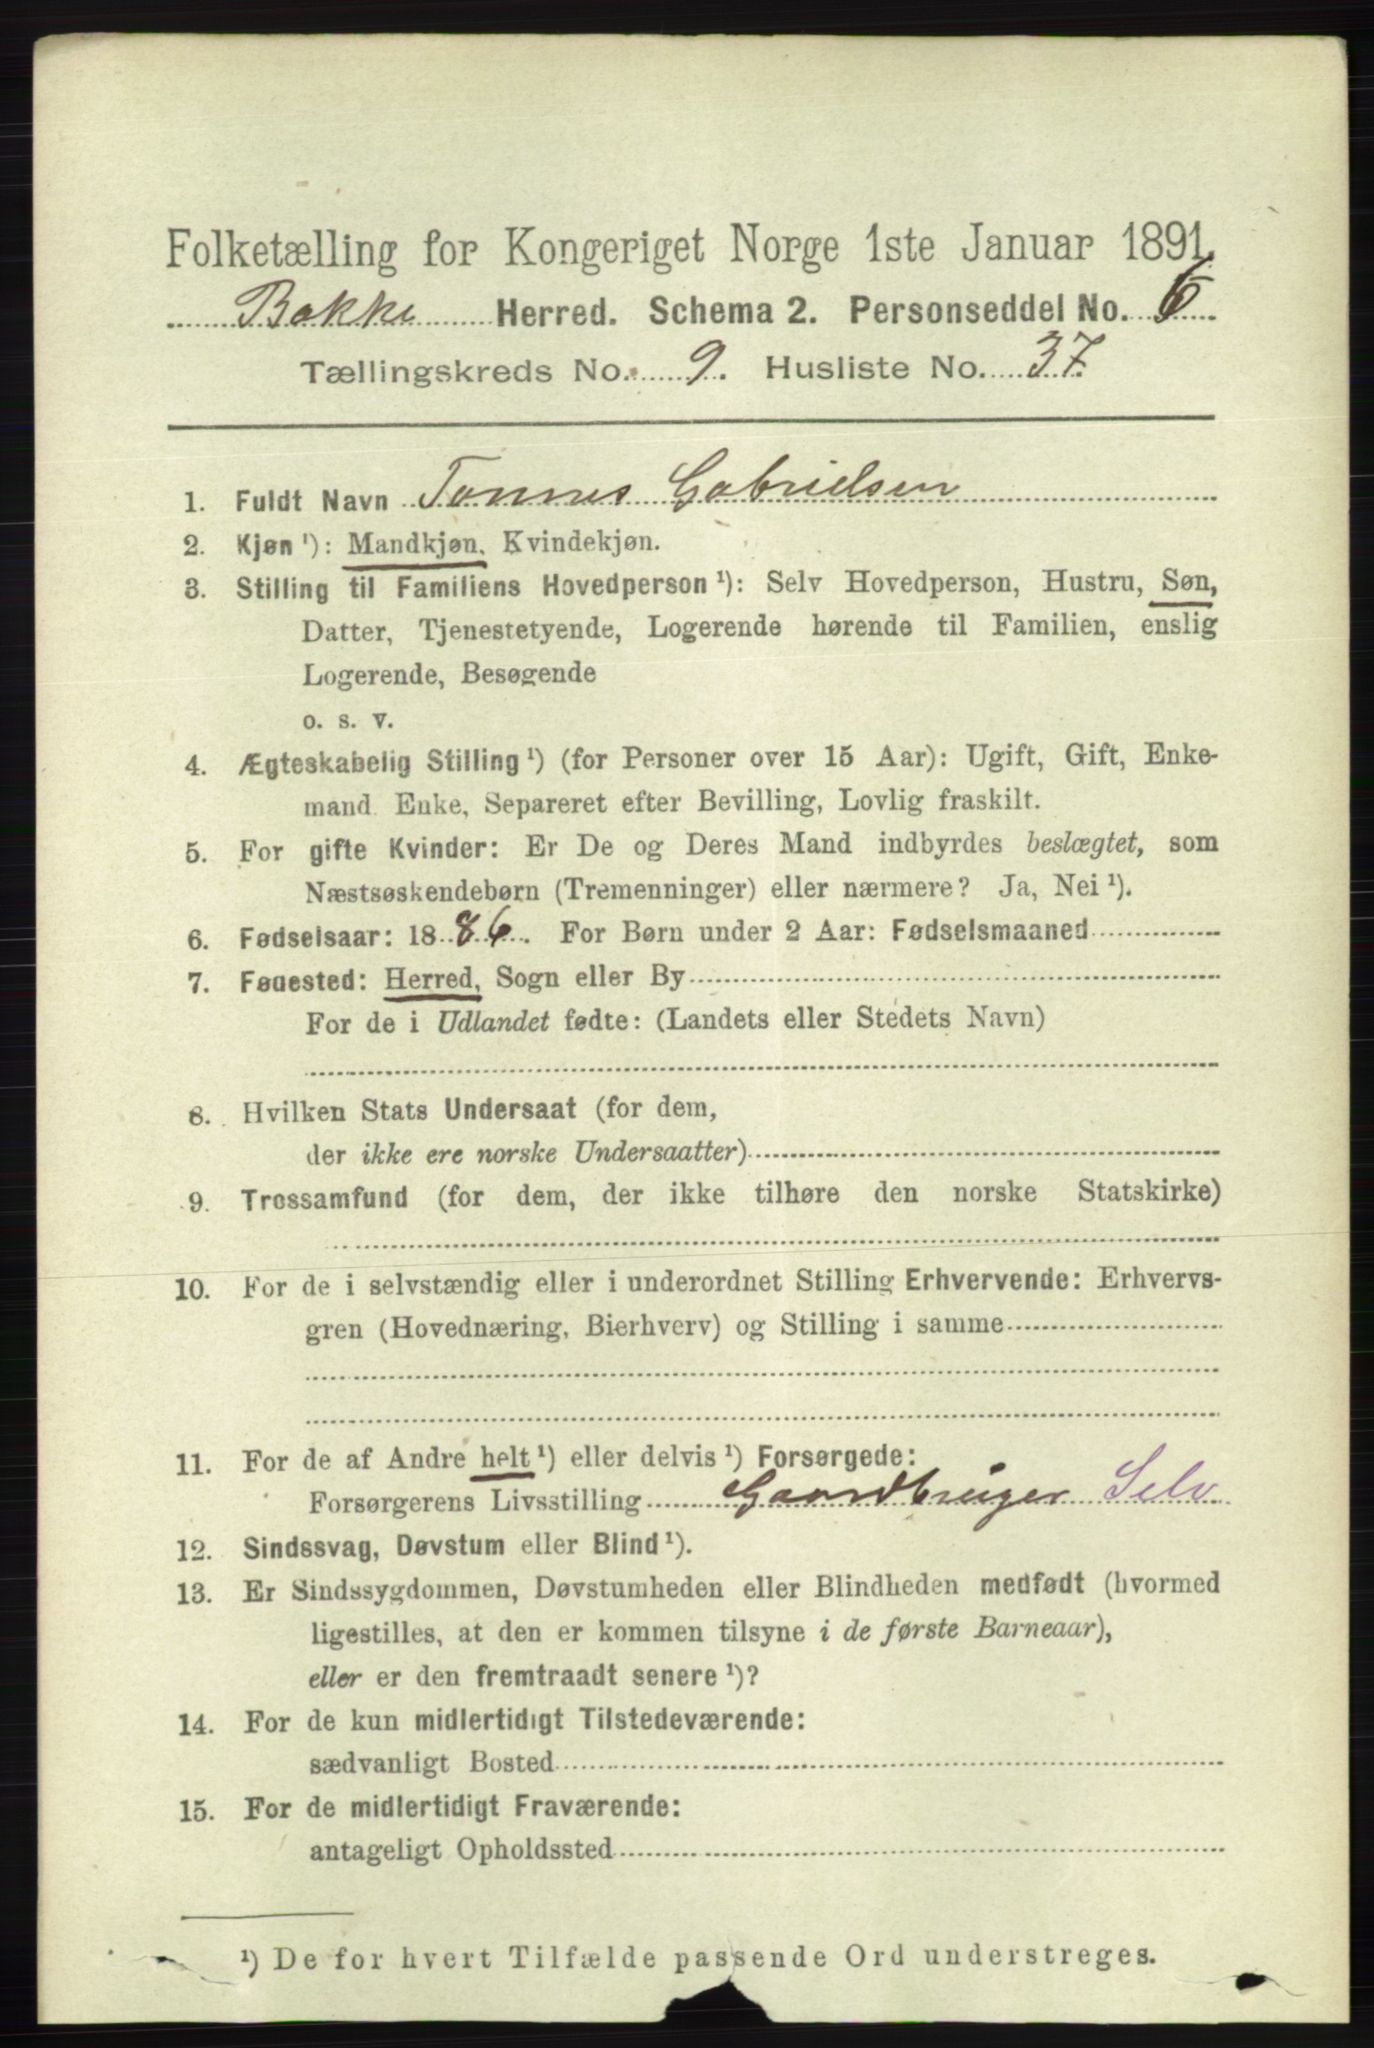 Folketælling for Kongeriget Norge 1ste Januar 1891.
Bakke Herred. Schema 2. Personseddel No. 6
Tællingskreds No. 9. Husliste No. 37.
1. Fuldt Navn Tønnes Gabrielsen
2. Kjøn ¹): Mandkjøn, Kvindekjøn.
3. Stilling til Familiens Hovedperson ¹): Selv Hovedperson, Hustru, Søn,
Datter, Tjenestetyende, Logerende hørende til Familien, enslig
Logerende, Besøgende
o. s. v.
4. Ægteskabelig Stilling ¹) (for Personer over 15 Aar): Ugift, Gift, Enke-
mand, Enke, Separeret efter Bevilling, Lovlig fraskilt.
5. For gifte Kvinder: Er De og Deres Mand indbyrdes beslægtet, som
Næstsøskendebørn (Tremenninger) eller nærmere? Ja, Nei ¹).
6. Fødselsaar: 1886. For Børn under 2 Aar: Fødselsmaaned
7. Fødested: Herred, Sogn eller By
For de i Udlandet fødte: (Landets eller Stedets Navn)
8. Hvilken Stats Undersaat (for dem,
der ikke ere norske Undersaatter)
9. Trossamfund (for dem, der ikke tilhøre den norske Statskirke)
10. For de i selvstændig eller i underordnet Stilling Erhvervende: Erhvervs-
gren (Hovednæring, Bierhverv) og Stilling i samme
11. For de af Andre helt ¹) eller delvis ¹) Forsørgede:
Forsørgerens Livsstilling Gaardbruger Selv
12. Sindssvag, Døvstum eller Blind ¹).
13. Er Sindssygdommen, Døvstumheden eller Blindheden medfødt (hvormed
ligestilles, at den er kommen tilsyne i de første Barneaar),
eller er den fremtraadt senere ¹)?
14. For de kun midlertidigt Tilstedeværende:
sædvanligt Bosted
15. For de midlertidigt Fraværende:
antageligt Opholdssted
¹) De for hvert Tilfælde passende Ord understreges.